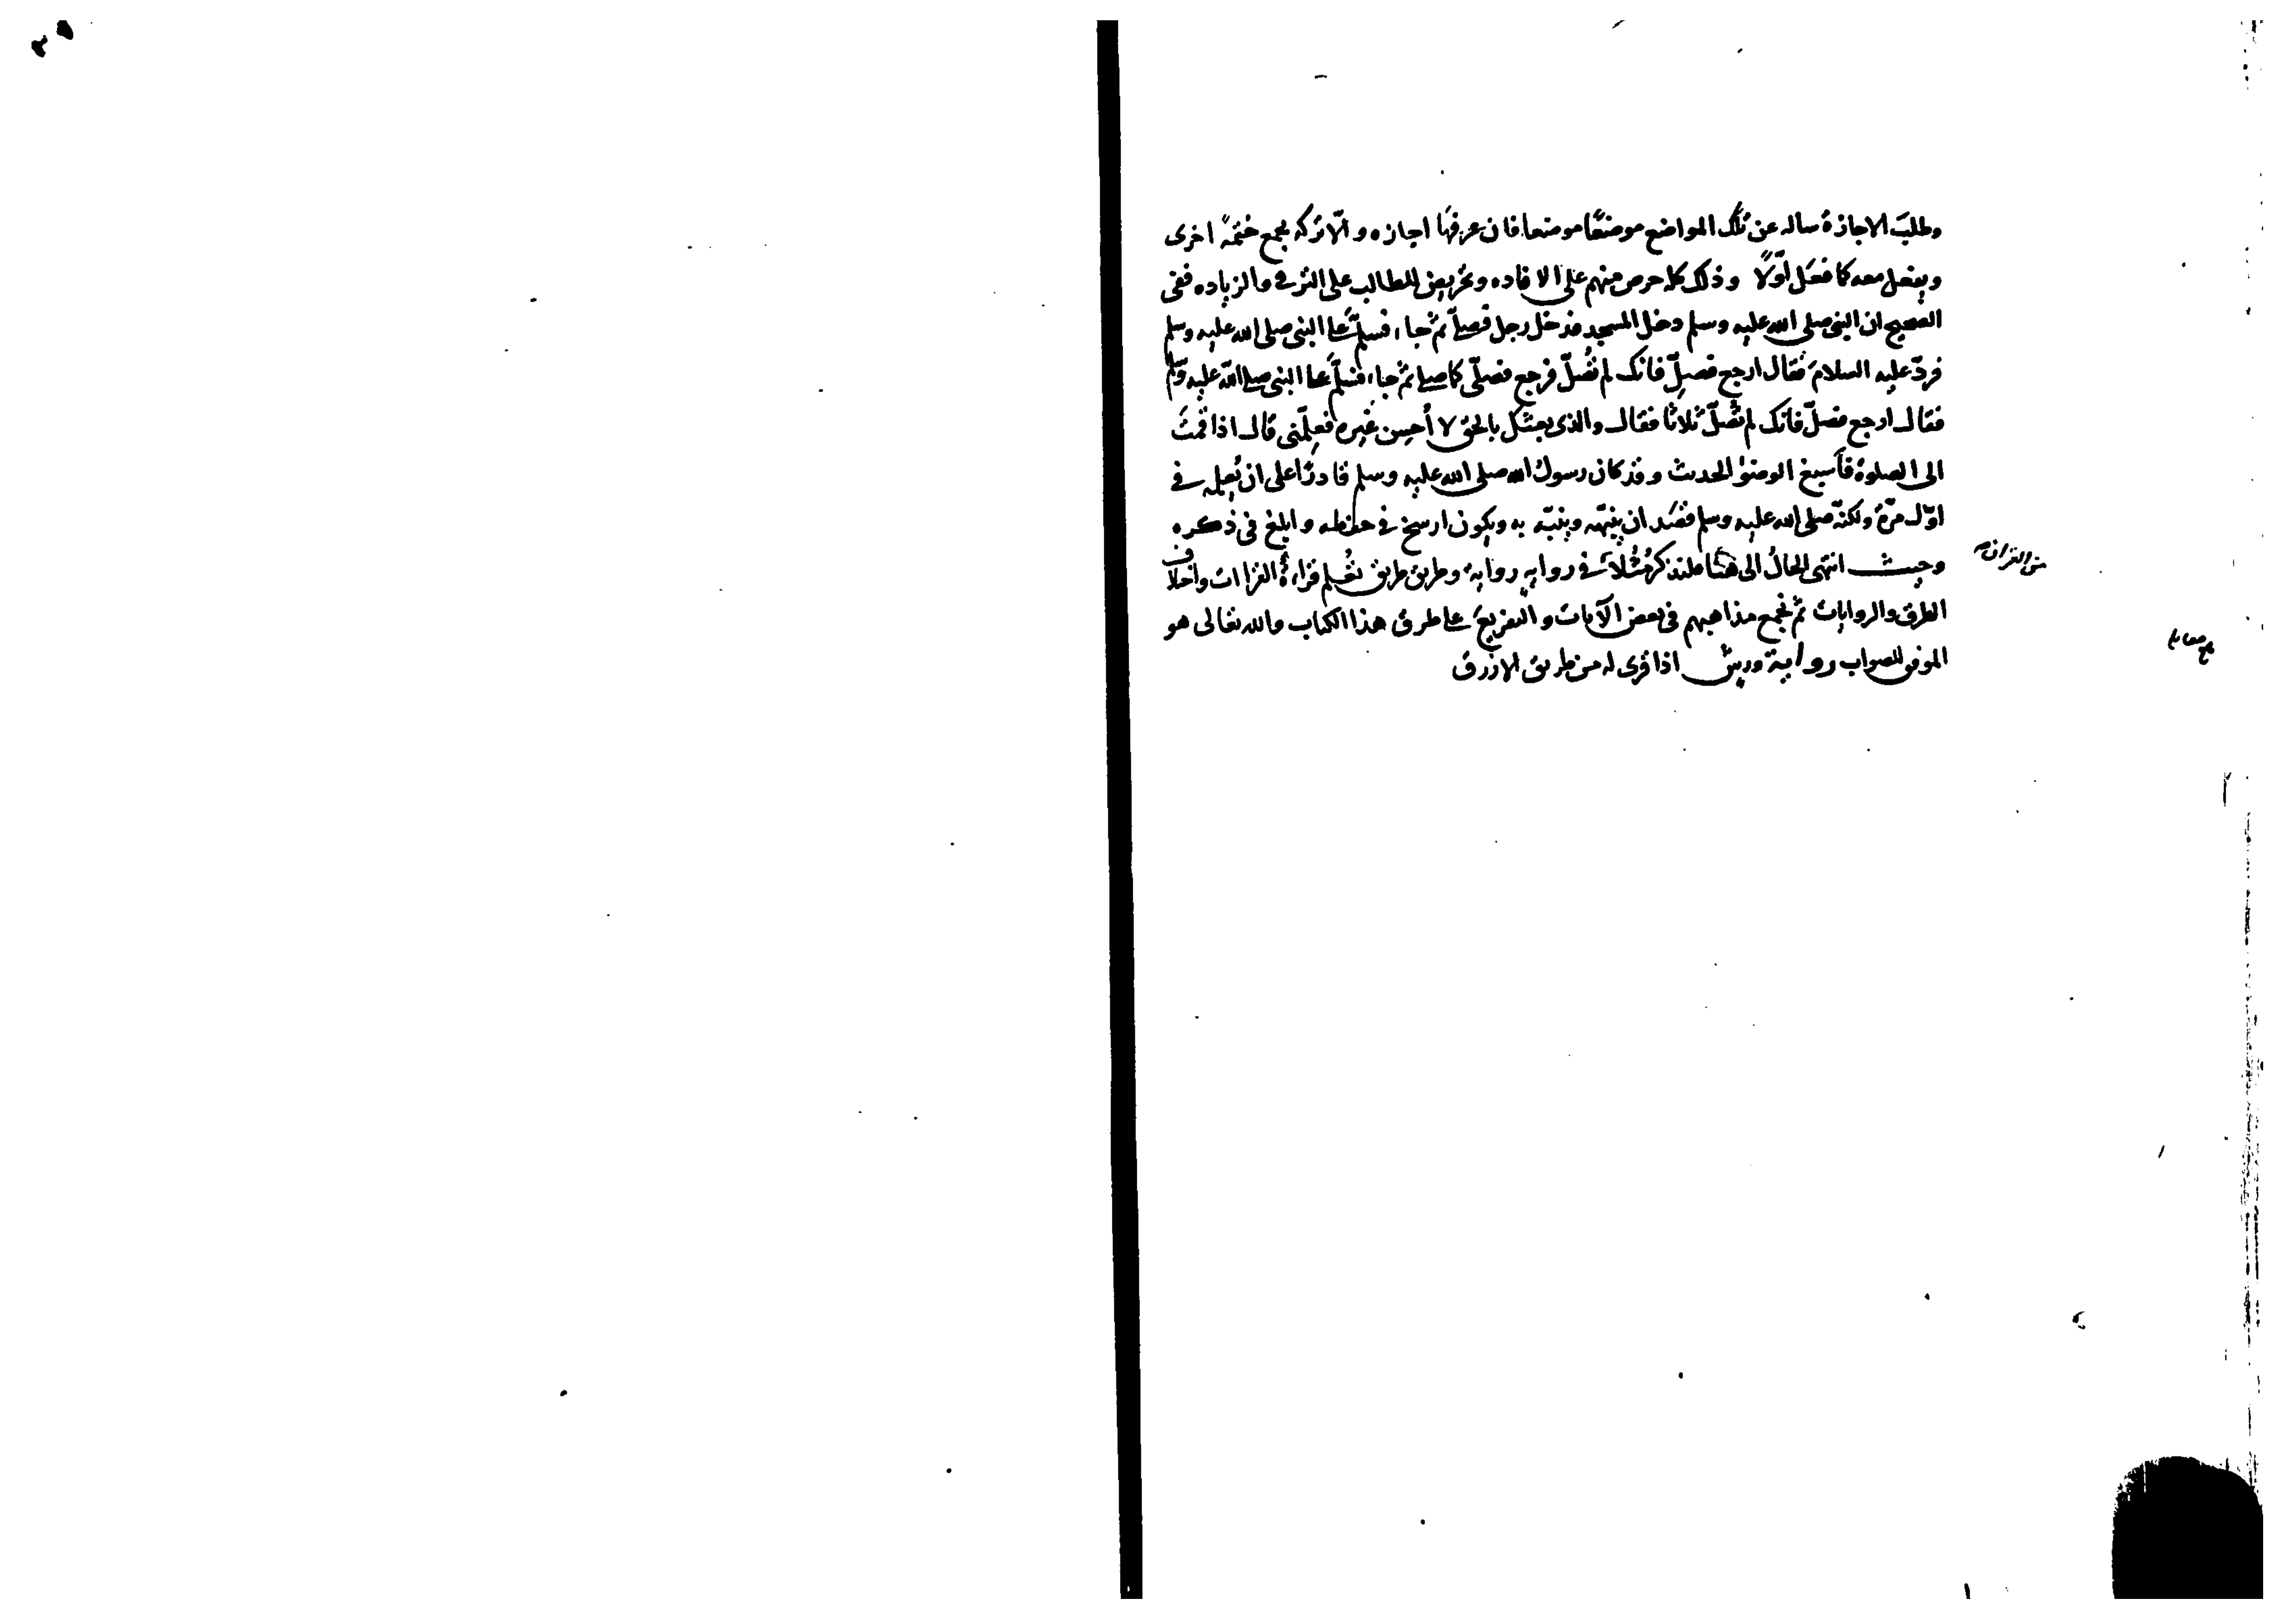 وطلبَ الاجازة ساله عن تلك المواضع موضعًا موضعا فان عرفهَا اجازه والّا تركه يجمع ختمةً اخرى
ويفعل معه كما فعَل اوّلًا وذلك كله حرص منهم على الافاده وتحريض للطالب على الترقى والزياده ففى
الصحيح ان النبى صلى الله عليه وسلم دخل المسجد فدخل رجل فصلّى ثم جاء فسلّم على النبى صلى الله عليه وسلم
فردّ عليه السلامَ فقال ارجع فصلِّ فانك لم تُصلّ فرجع فصلّى كما صلى ثم جاء فسلّم على النبى صلى الله عليه وسلم
فقال ارجع فصلّ فانك لم تُصلّ ثلاثا فقال والذى بعثك بالحق لا أُحسِن غيره فعلّمنى قال اذا قمتَ
الى الصلوة فأسبغ الوضوٰ الحديث وقد كان رسولُ الله صلى الله عليه وسلم قادرًا على ان يُعلمه فى
اوّل مرّة ولكنّه صلى الله عليه وسلم قصَد ان ينبّهه وينبّه به ويكون ارسخ فى حفظه وابلغ فى ذكره
وحيث انتهى الحالُ الى هنا فلنذكر مُثُلًا فى رواية رواية وطريق طريق تُعْلم قراءةُ القراات واختلاف
من القرآن
الطرق والروايات ثم نجمع مذاهبهم فى بعض الآيات والتفريع على طرق هذا الكتاب والله تعالى هو
الموفق للصواب رواية ورش اذا قرى له من طريق الازرق